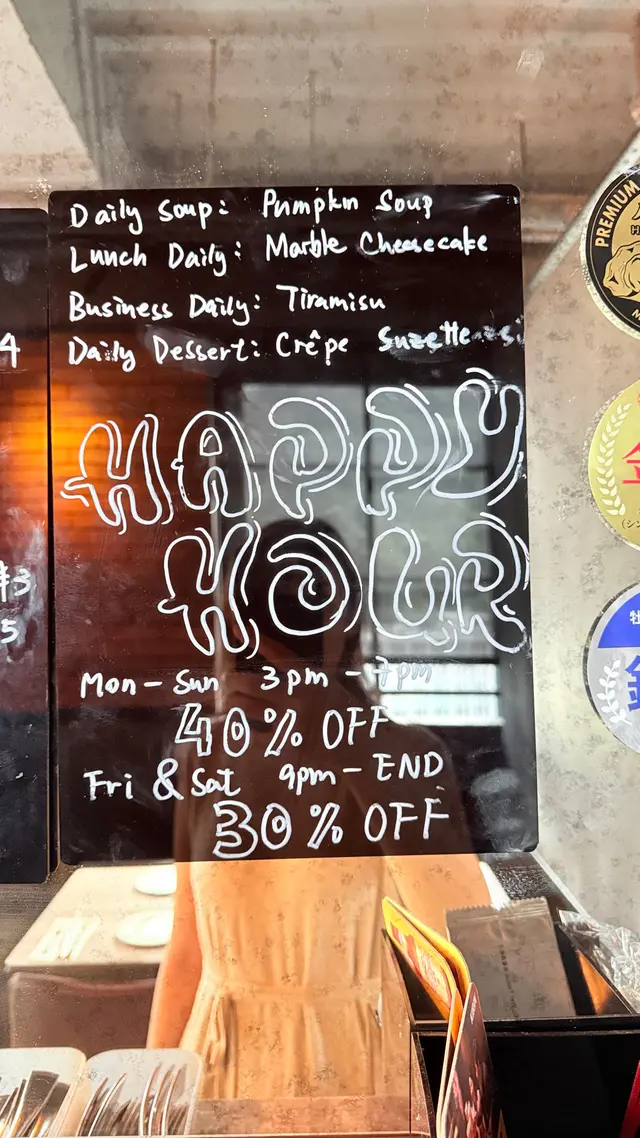 Daily Soup: Pumpkin Soup
Lunch Daily: Marble Cheesecake
Business Daily: Tiramisu
Daily Dessert: Crêpe Suzette
HAPPY
HOUR
Mon - Sun 3pm - 7pm
40% OFF
Fri & Sat 9pm - END
30% OFF
4
5
PREMIUM